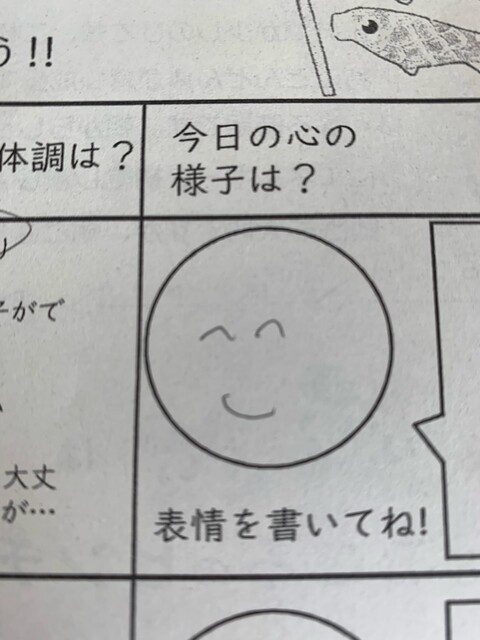 う!!
体調は？
今日の心の
様子は？
子がで
大丈
が…
表情を書いてね!